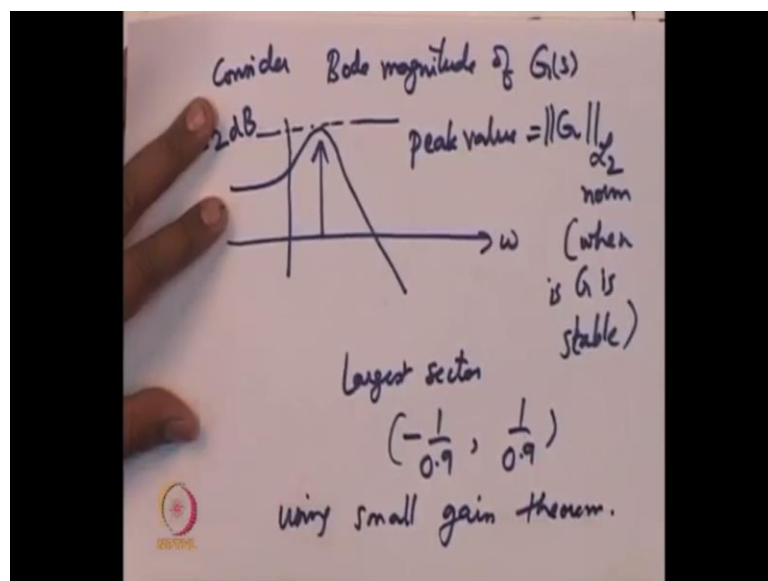 Consider Bode magnitude of G(s)
2dB
peak value = ||G||
L2
norm
(when
is G is
stable)
ω
Largest sector
(-1/0.9, 1/0.9)
using small gain theorem.
NPTEL